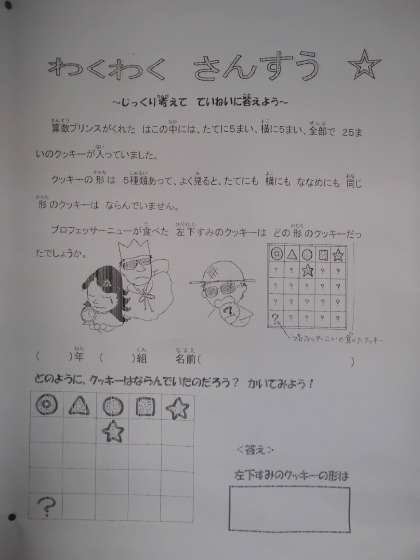 わくわく さんすう ☆
～じっくり考えて ていねいに答えよう～
算数プリンスがくれた はこの中には、たてに5まい、横に5まい、全部で 25ま
いのクッキーが入っていました。
クッキーの 形は 5種類あって、よく見ると、たてにも 横にも ななめにも 同じ
形のクッキーは ならんでいません。
プロフェッサーニューが食べた 左下すみのクッキーは どの形のクッキーだっ
たでしょうか。
( )年 ( )組 名前( )
どのように、クッキーはならんでいたのだろう？ かいてみよう！
＜答え＞
左下すみのクッキーの形は